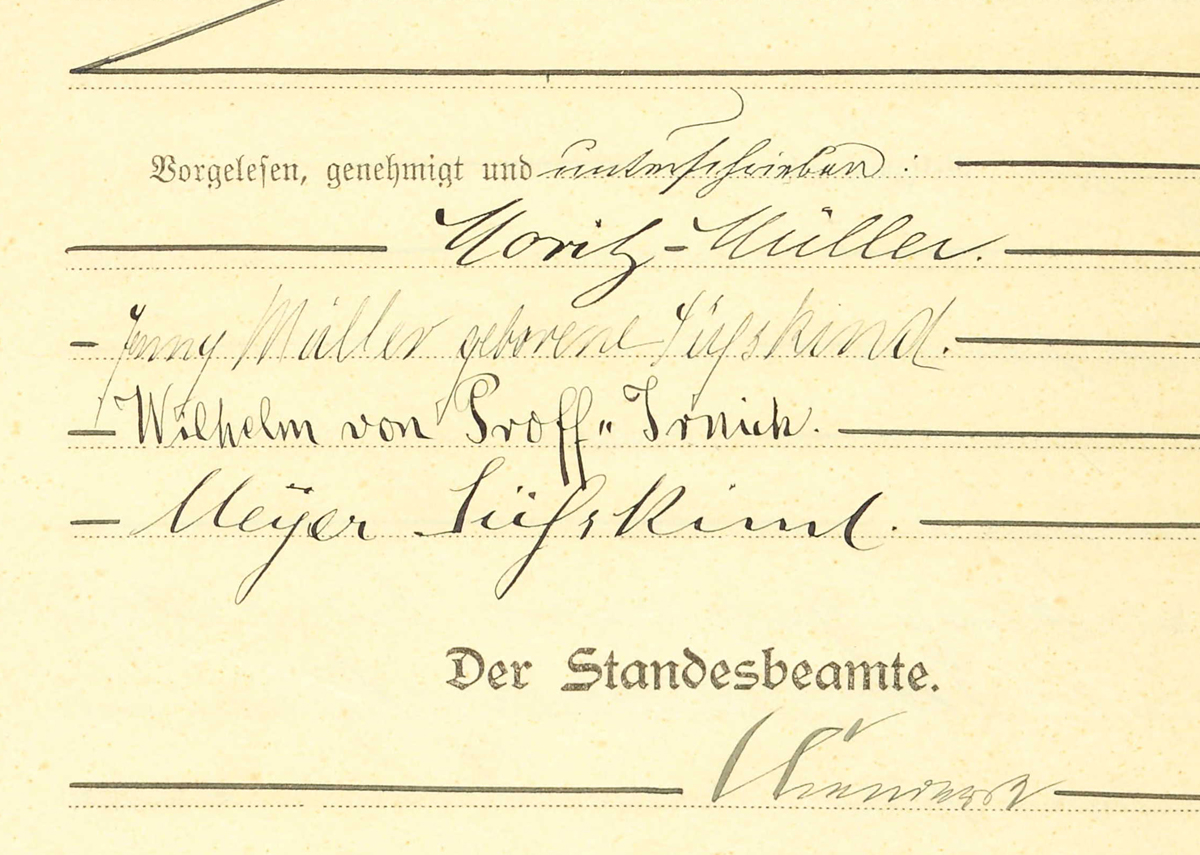 Vorgelesen, genehmigt und unterschrieben:
Moritz-Müller.
Jenny Müller geborene Süßskind.
Wilhelm von Proff-Irnich.
Meyer Süßskind.
Der Standesbeamte.